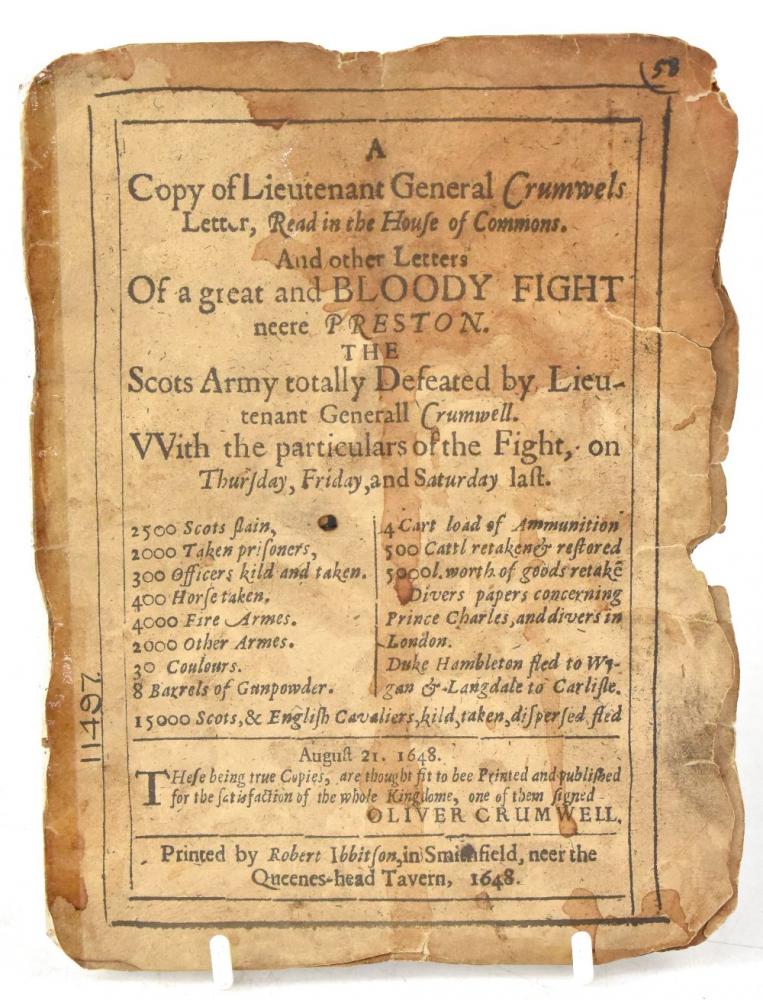 58
A
Copy of Lieutenant General Crumwels
Letter, Read in the Houſe of Commons.
And other Letters
Of a great and BLOODY FIGHT
neere PRESTON.
THE
Scots Army totally Defeated by Lieu-
tenant Generall Crumwell.
VVith the particulars of the Fight, on
Thurſday, Friday, and Saturday laſt.
2500 Scots ſlain,
2000 Taken priſoners,
300 Officers kild and taken.
400 Horſe taken.
4000 Fire Armes.
2000 Other Armes.
30 Coulours.
8 Barrels of Gunpowder.
4 Cart load of Ammunition
500 Cattl retaken & reſtored
5000l. worth of goods retakē
Divers papers concerning
Prince Charles, and divers in
London.
Duke Hambleton fled to Wy-
gan & Langdale to Carliſle.
15000 Scots, & Engliſh Cavaliers, kild, taken, diſperſed, fled
August 21. 1648.
THeſe being true Copies, are thought fit to bee Printed and publiſhed
for the ſatisfaction of the whole Kingdome, one of them ſigned
OLIVER CRUMWELL.
Printed by Robert Ibbitſon, in Smithfield, neer the
Queenes-head Tavern, 1648.
11497